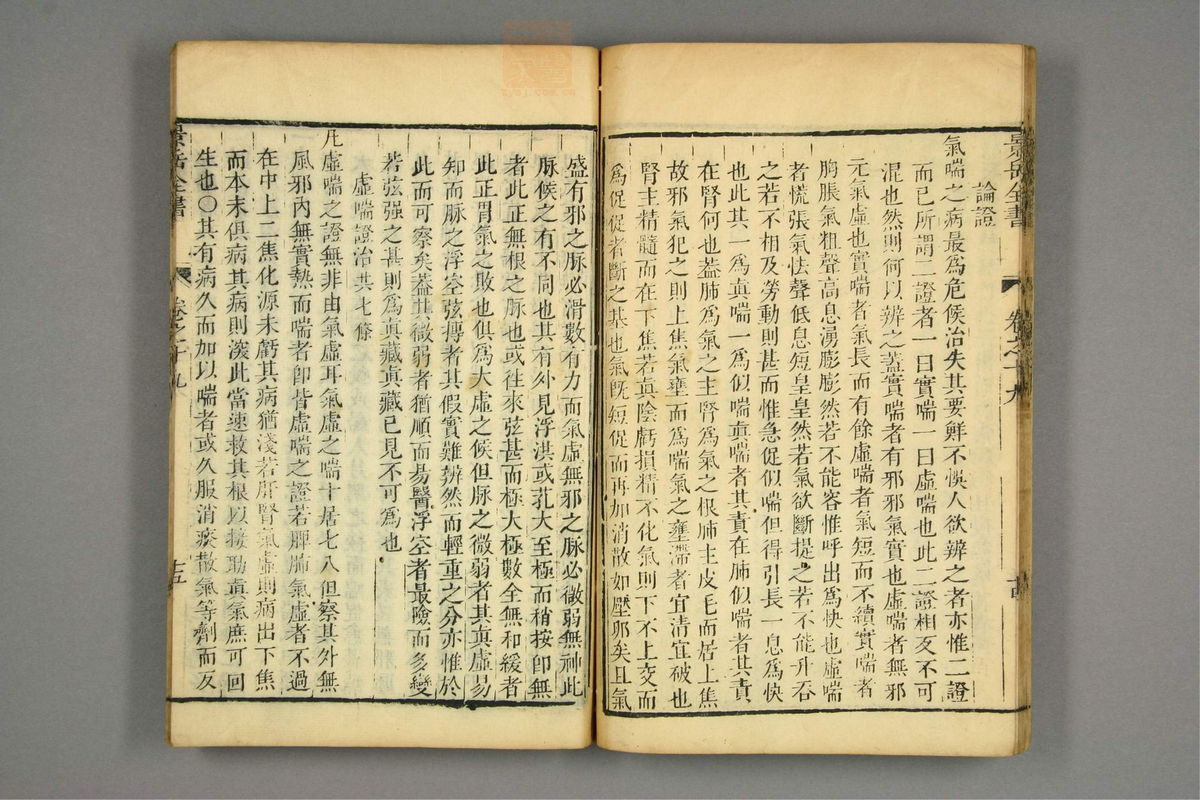 景岳全書
卷之十九
論證
氣喘之病最爲危候治失其要鮮不悞人欲辨之者亦惟二證
而已所謂二證者一曰實喘一曰虛喘也此二證相反不可
混也然則何以辨之蓋實喘者有邪邪氣實也虛喘者無邪
元氣虛也實喘者氣長而有餘虛喘者氣短而不續實喘者
胸脹氣粗聲高息湧膨膨然若不能容惟呼出爲快也虛喘
者慌張氣怯聲低息短皇皇然若氣欲斷提之若不能升吞
之若不相及勞動則甚而惟急促似喘但得引長一息爲快
也此其一爲眞喘一爲似喘眞喘者其責在肺似喘者其責
在腎何也蓋肺爲氣之主腎爲氣之根肺主皮毛而居上焦
故邪氣犯之則上焦氣壅而爲喘氣之壅滯者宜清宜破也
腎主精髓而在下焦若眞陰虧損精不化氣則下不上交而
爲促促者斷之基也氣旣短促而再加消散如壓卵矣且氣
盛有邪之脉必滑數有力而氣虛無邪之脉必微弱無神此
脉候之有不同也其有外見浮洪或芤大至極而稍按卽無
者此正無根之脉也或往來弦甚而極大極數全無和緩者
此正胃氣之敗也俱爲大虛之候但脉之微弱者其眞虛易
知而脉之浮空弦搏者其假實難辨然而輕重之分亦惟於
此而可察矣蓋其微弱者猶順而易醫浮空者最險而多變
若弦强之甚則爲眞藏眞藏已見不可爲也
虛喘證治共七條
凡虛喘之證無非由氣虛耳氣虛之喘十居七八但察其外無
風邪內無實熱而喘者卽皆虛喘之證若脾肺氣虛者不過
在中上二焦化源未虧其病猶淺若肝腎氣虛則病出下焦
而本末俱病其病則深此當速救其根以接助眞氣庶可回
生也〇其有病久而加以喘者或久服消痰散氣等劑而反
景岳全書
卷之十九
十五